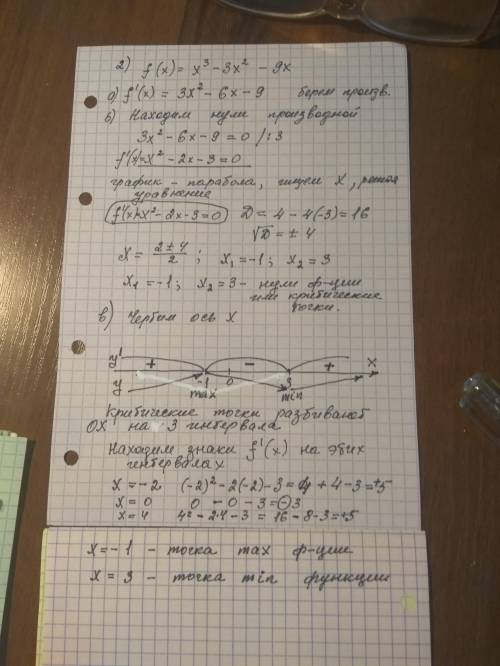 2) f(x) = x³ - 3x² - 9x
а) f'(x) = 3x² - 6x - 9 берем произв.
б) Находим нули производной
3x² - 6x - 9 = 0 /:3
f'(x)=x² - 2x - 3 = 0
график - парабола, ищем x, решая
уравнение
f'(x)=x² - 2x - 3 = 0 D = 4 - 4(-3) = 16
√D = ± 4
x = (2 ± 4)/2 ; x₁ = -1 ; x₂ = 3
x₁ = -1 ; x₂ = 3 - нули ф-ции
или критические
точки.
в) Чертим ось x
y' + - + x
y -1 0 3
max min
Критические точки разбивают
OX на 3 интервала
Находим знаки f'(x) на этих
интервалах
x = -2 (-2)² - 2(-2) - 3 = 4 + 4 - 3 = +5
x = 0 0 - 0 - 3 = -3
x = 4 4² - 2·4 - 3 = 16 - 8 - 3 = +5
x = -1 - точка max ф-ции
x = 3 - точка min функции